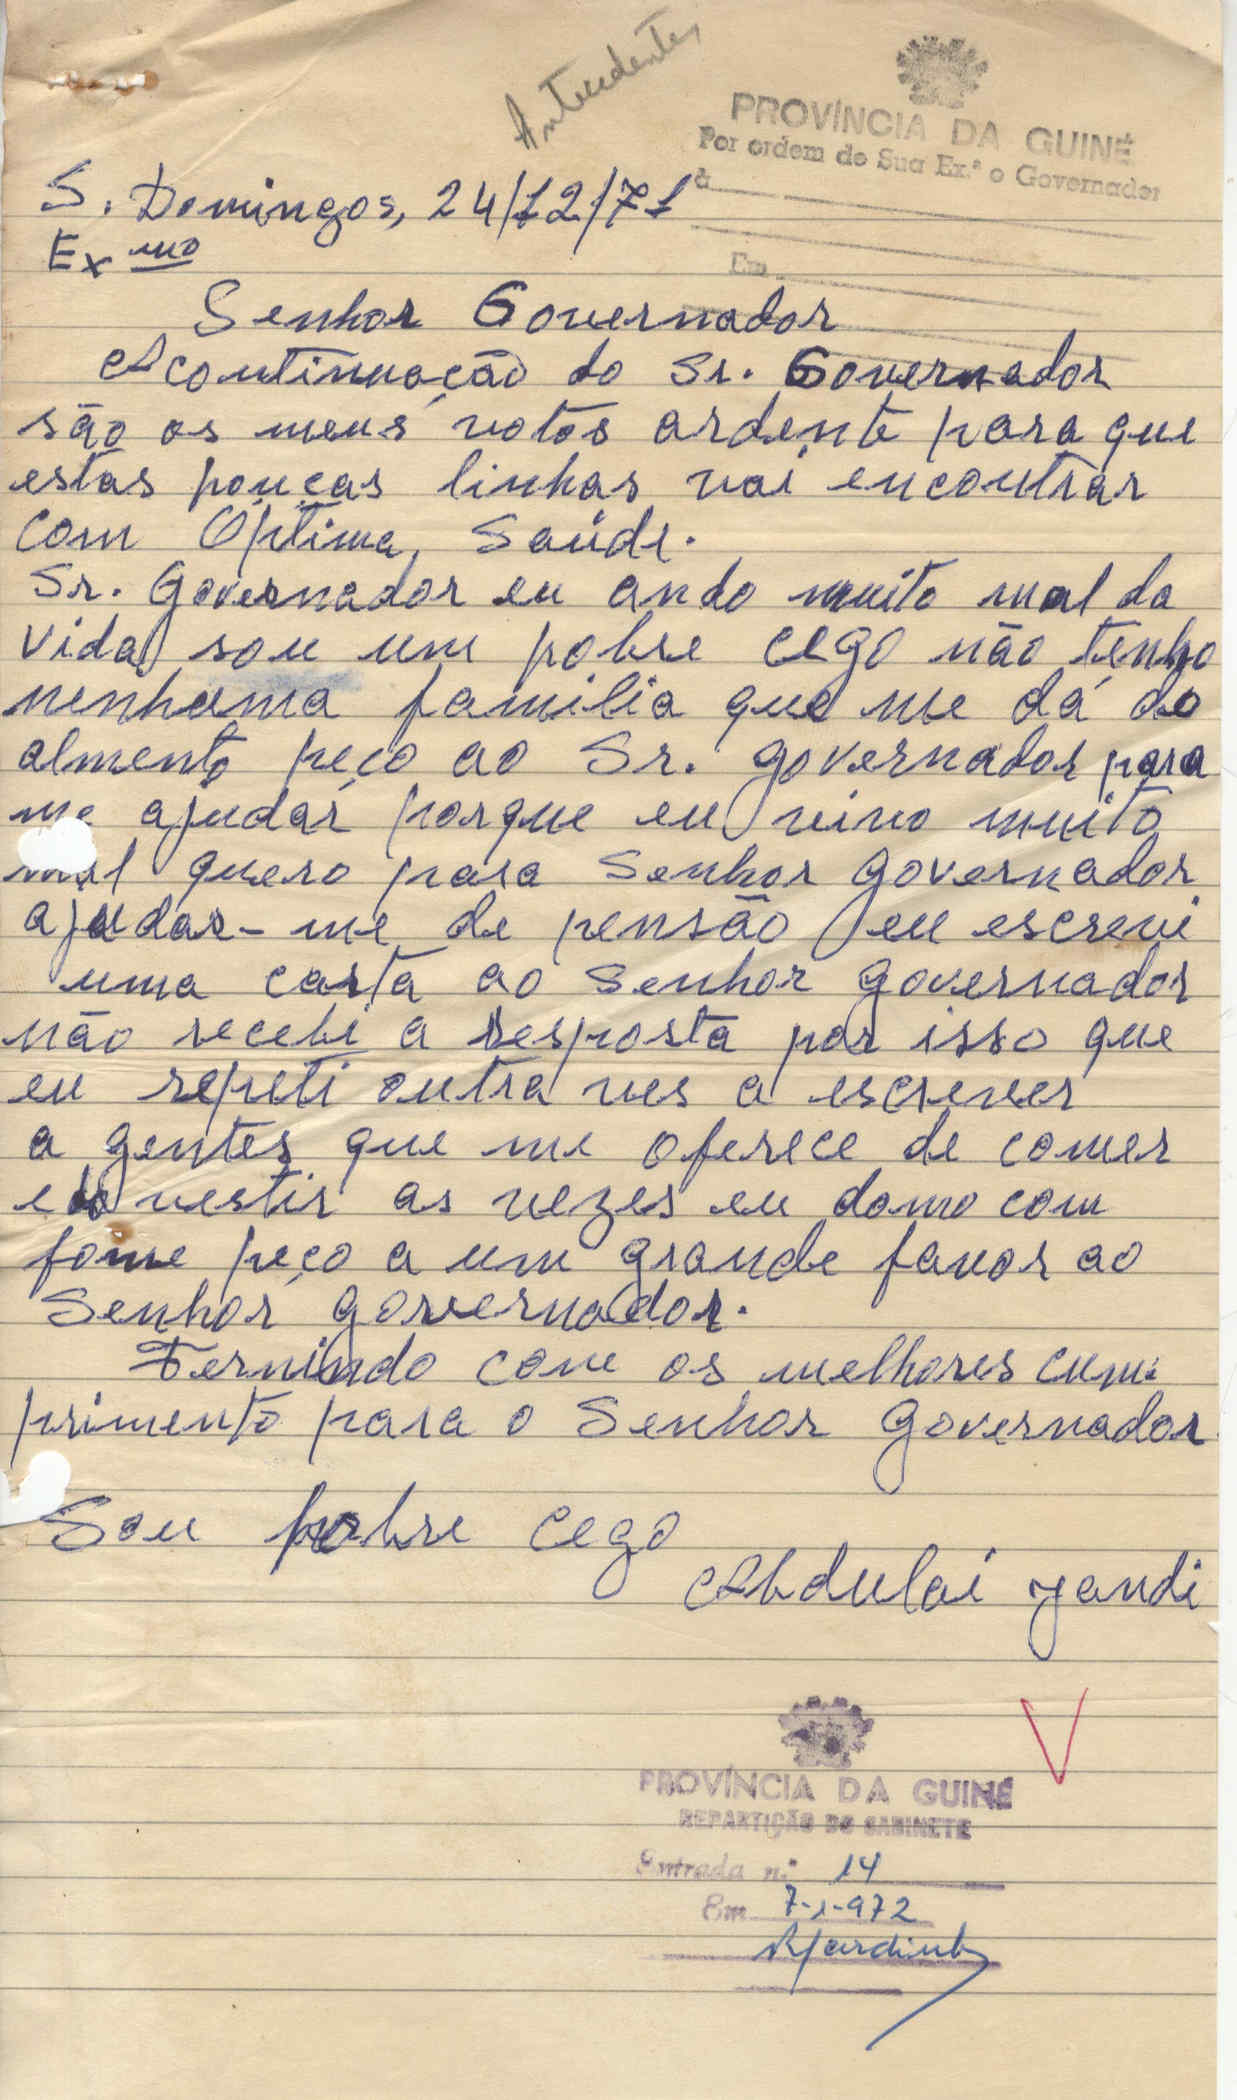 Antecedentes
PROVÍNCIA DA GUINÉ
Por ordem de Sua Ex.ª o Governador
à
Em
S. Domingos, 24/12/71
Ex mo
Senhor Governador
A continuação do Sr. Governador
são os meus votos ardente para que
estas poucas linhas vai encontrar
com Óptima, Saúde.
Sr. Governador eu ando muito mal da
vida sou um pobre cego não tenho
nenhuma familia que me dá do
almento peço ao Sr. governador para
me ajudar porque eu vivo muito
mal quero para Senhor governador
ajudar-me de pensão eu escrevi
uma carta ao Senhor governador
não recebi a resposta por isso que
eu repeti outra ves a escrever
a gentes que me oferece de comer
e do vestir as vezes eu domo com
fome peço a um grande favor ao
Senhor governador.
Fernindo com os melhores cum-
primento para o Senhor governador
Sou pobre cego
Abdulai Jandi
PROVÍNCIA DA GUINÉ
REPARTIÇÃO DO GABINETE
Entrada n.º 14
Em 7-1-972